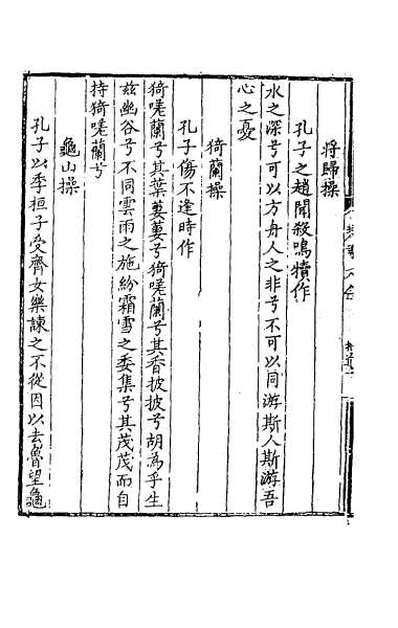 將歸操
孔子之趙聞殺鳴犢作
水之深兮可以方舟人之非兮不可以同游斯人斯游吾
心之憂
猗蘭操
孔子傷不逢時作
猗嗟蘭兮其葉萋萋兮猗嗟蘭兮其香披披兮胡為乎生
茲幽谷兮不同雲雨之施紛霜雪之委集兮其茂茂而自
持猗嗟蘭兮
龜山操
孔子以季桓子受齊女樂諫之不從因以去魯望龜